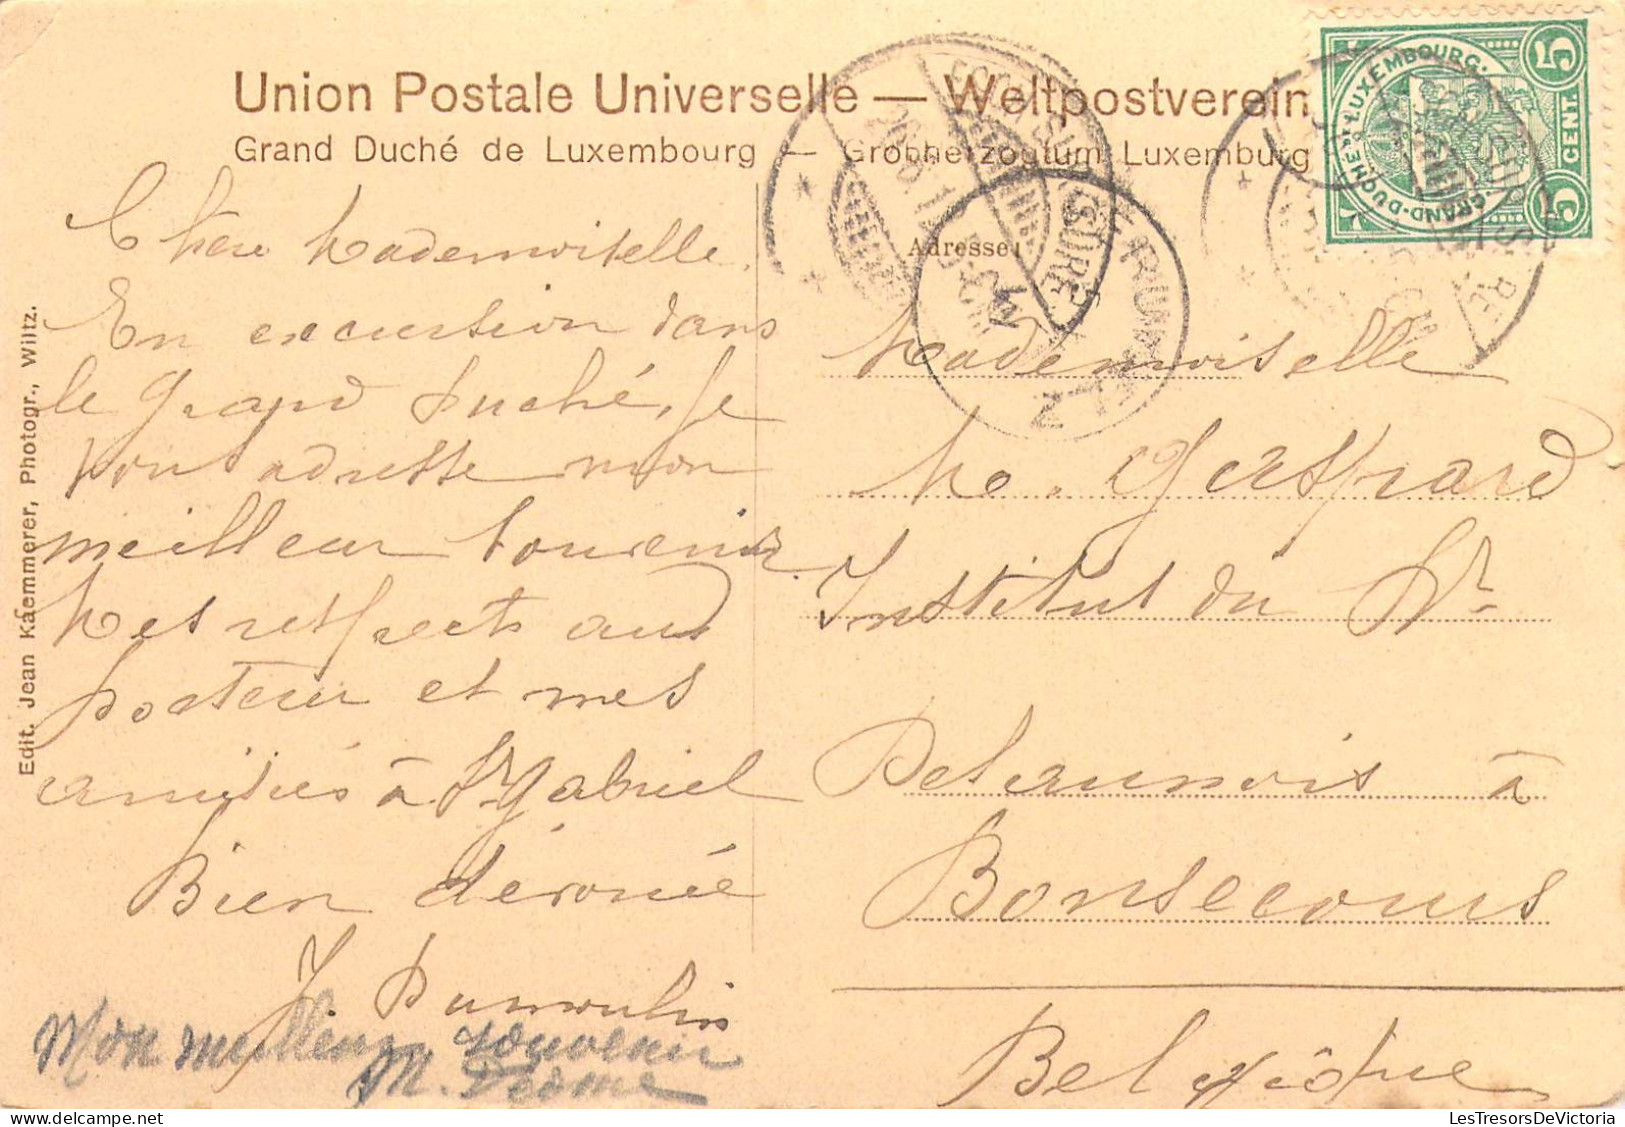 Union Postale Universelle — Weltpostverein
Grand Duché de Luxembourg — Groβherzogtum Luxemburg
GRAND-DUCHÉ DE LUXEMBOURG.
5 CENT. 5
ESCH S. SURE
Adresse:
Edit. Jean Kaemmerer, Photogr., Wiltz.
Chère Mademoiselle.
En excursion dans
le Grand Duché, je
vous adresse mon
meilleur souvenir.
Mes respects aux
pasteur et mes
amitiés à St Gabriel
Bien dévouée
J. Dumoulin
Mon meilleur souvenir
M.
Mademoiselle
M. Gaspard
Institut du Dr
à
Bonsecours
Belgique
LesTresorsDeVictoria.com